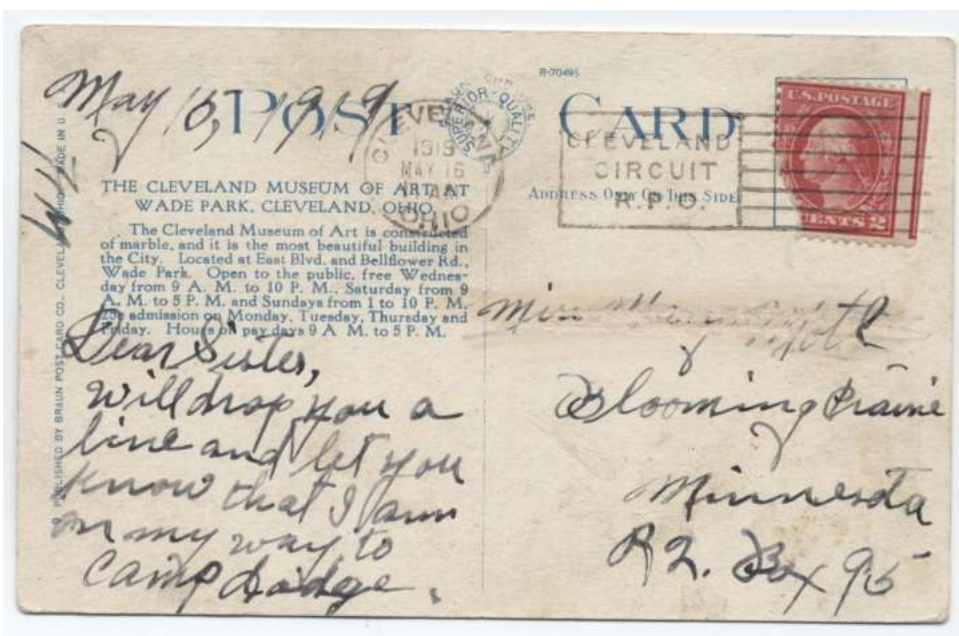 May 15, 1919
POST CARD
R-70495
SUPERIOR-QUALITY
CLEVELAND
1919
MAY 16
AM
OHIO
CLEVELAND
CIRCUIT
R.P.O.
U.S. POSTAGE
CENTS 2
ADDRESS ONLY ON THIS SIDE
THE CLEVELAND MUSEUM OF ART AT
WADE PARK, CLEVELAND, OHIO.
The Cleveland Museum of Art is constructed
of marble, and it is the most beautiful building in
the City. Located at East Blvd. and Bellflower Rd.,
Wade Park. Open to the public, free Wednes-
day from 9 A. M. to 10 P. M., Saturday from 9
A. M. to 5 P. M. and Sundays from 1 to 10 P. M.
25c admission on Monday, Tuesday, Thursday and
Friday. Hours on pay days 9 A. M. to 5 P. M.
PUBLISHED BY BRAUN POST CARD CO., CLEVELAND, OHIO MADE IN U.S.
Dear Sister,
Will drop you a
line and let you
know that I am
on my way to
Camp Dodge.
Miss
Blooming Prairie
Minnesota
R2. Box 95